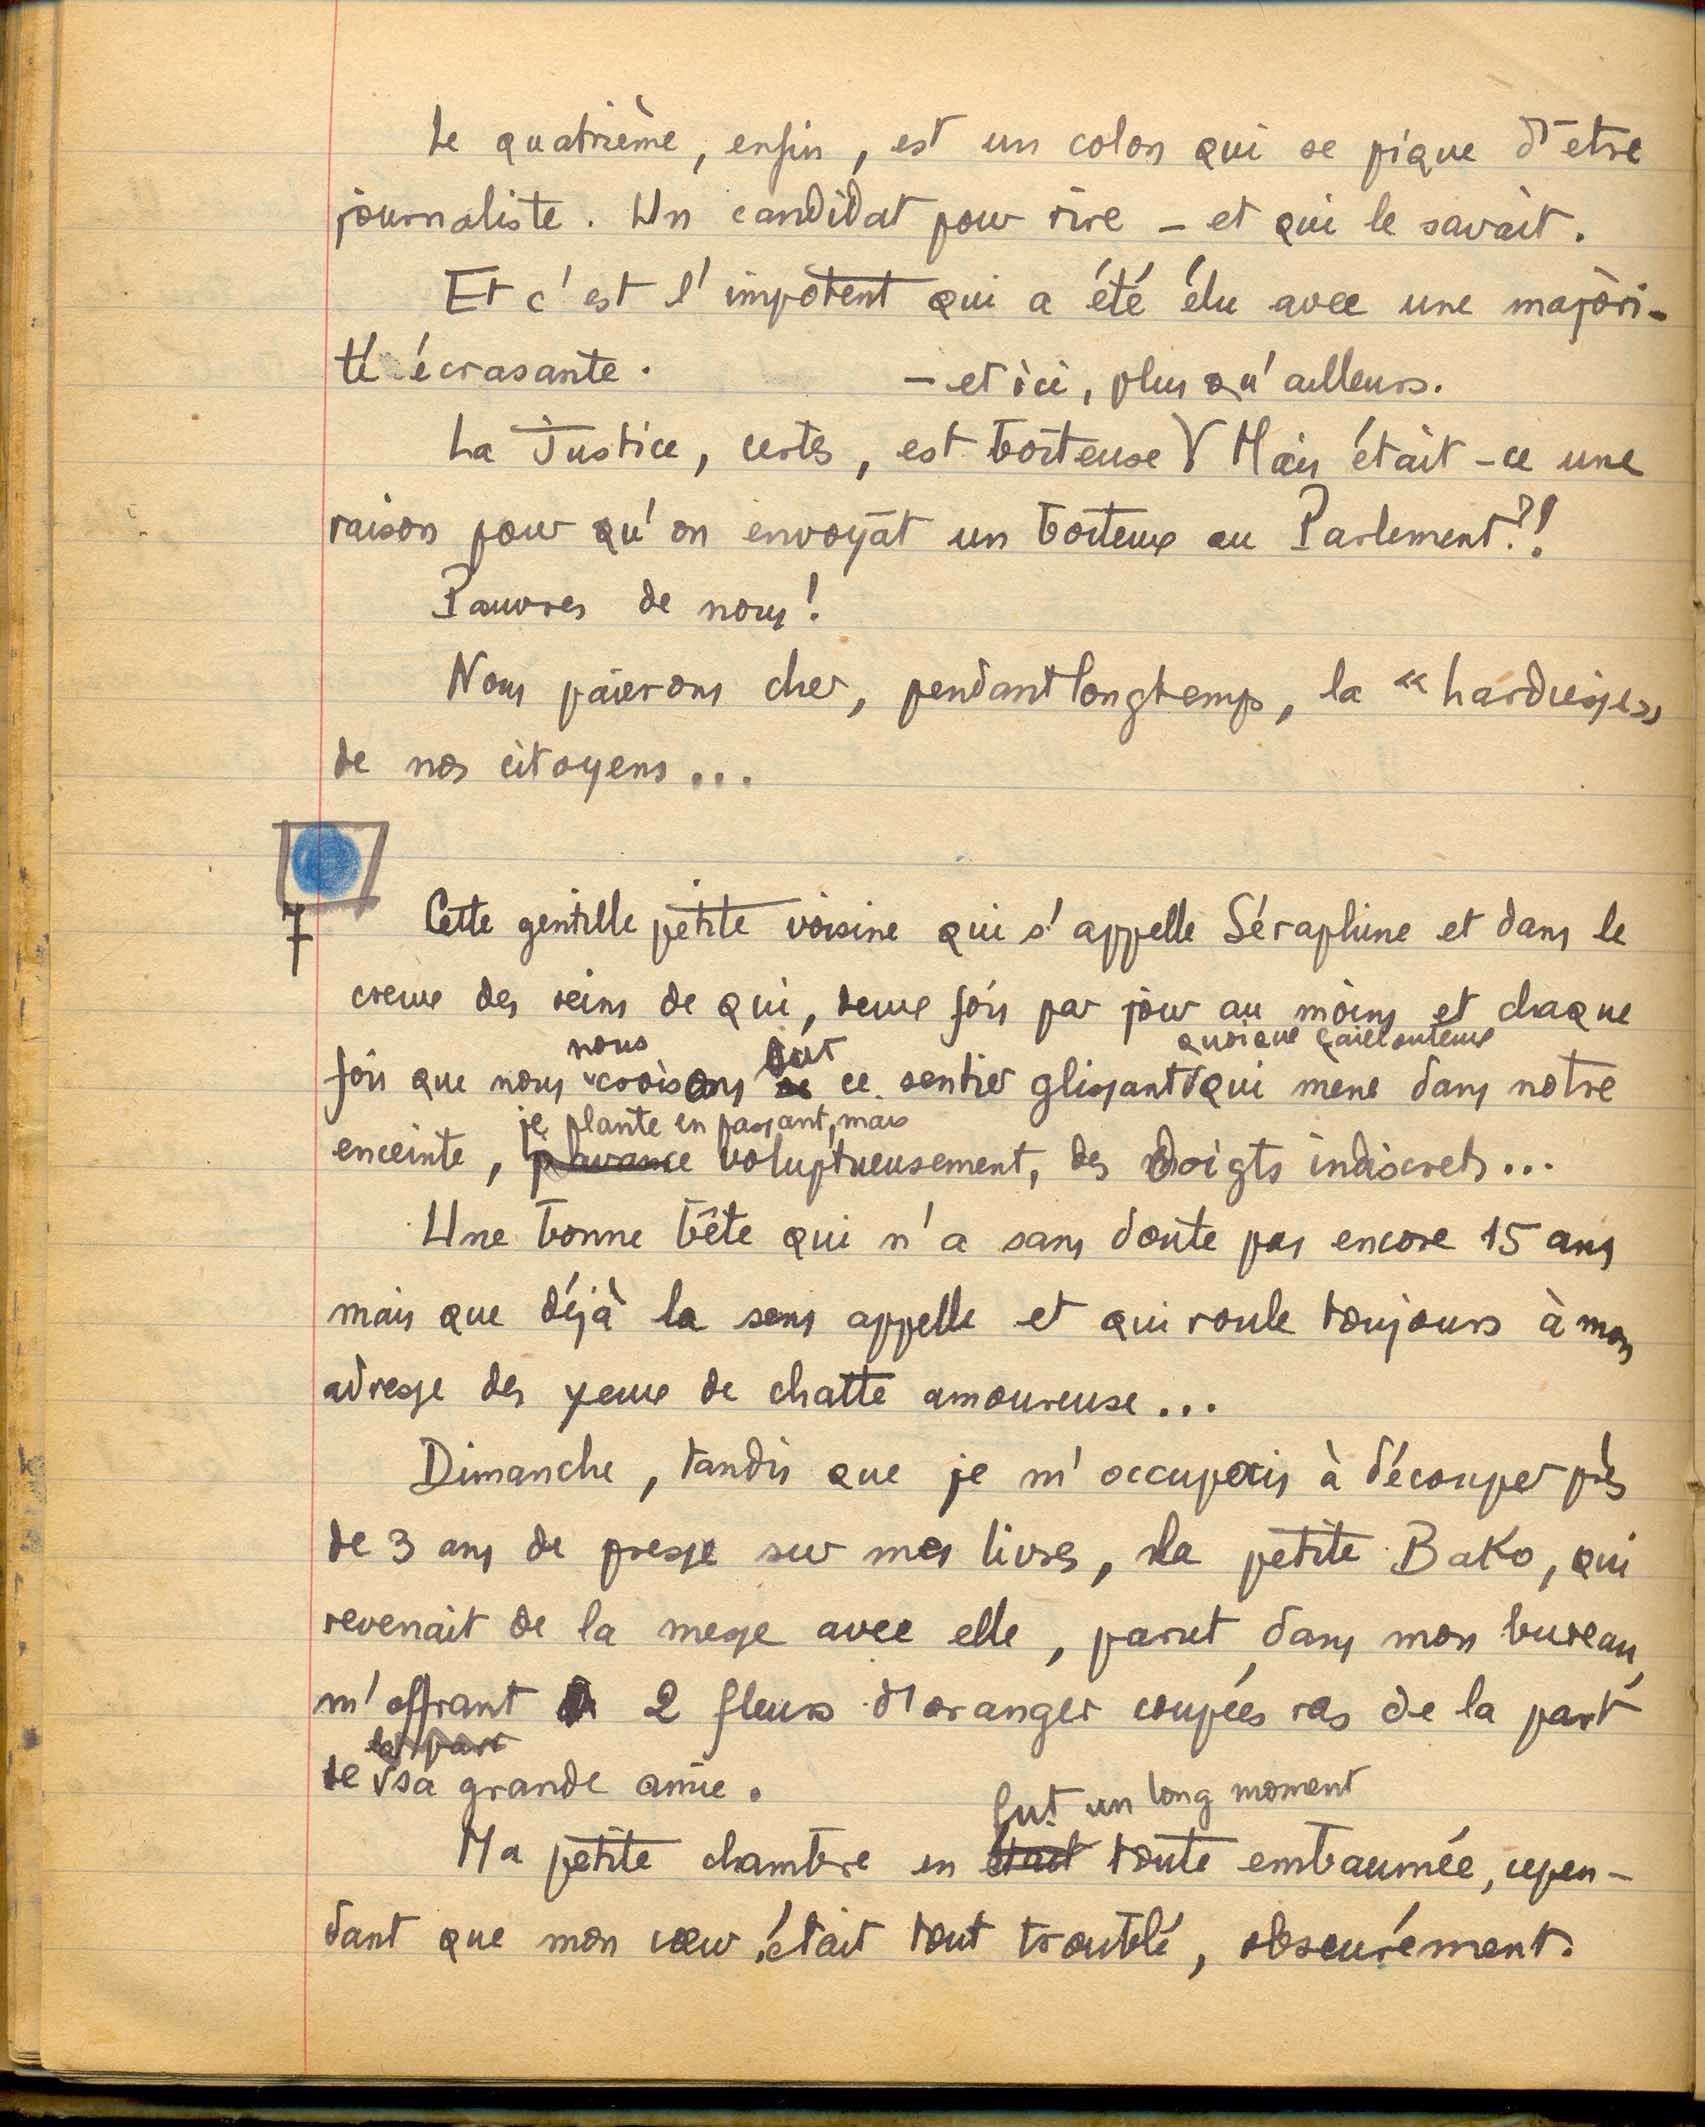 Le quatrième, enfin, est un colon qui se pique d'etre
journaliste. Un candidat pour rire – et qui le savait.
Et c'est l'impotent qui a été élu avec une majori-
té écrasante.
– et ici, plus qu'ailleurs.
La Justice, certes, est boiteuse V Mais était-ce une
raison pour qu'on envoyât un boiteux au Parlement?!
Pauvres de nous!
Nous paierons cher, pendant longtemps, la « hardiesse »
de nos citoyens...
7 Cette gentille petite voisine qui s'appelle Séraphine et dans le
creux des reins de qui, deux fois par jour au moins et chaque
nous sur quoique caillouteux
fois que nous croisons ce sentier glissant qui mène dans notre
je plante en passant, mais
enceinte, voluptueusement, des doigts indiscrets...
Une bonne bête qui n'a sans doute pas encore 15 ans
mais que déjà la sens appelle et qui roule toujours à mon
adresse des yeux de chatte amoureuse...
Dimanche, tandis que je m'occupais à découper près
de 3 ans de presse sur mes livres, la petite Bako, qui
revenait de la messe avec elle, parut dans mon bureau,
m'offrant 2 fleurs d'oranger coupées ras de la part
la part
de sa grande amie.
fut un long moment
Ma petite chambre en était toute embaumée, cepen-
dant que mon cœur était tout troublé, obscurément.